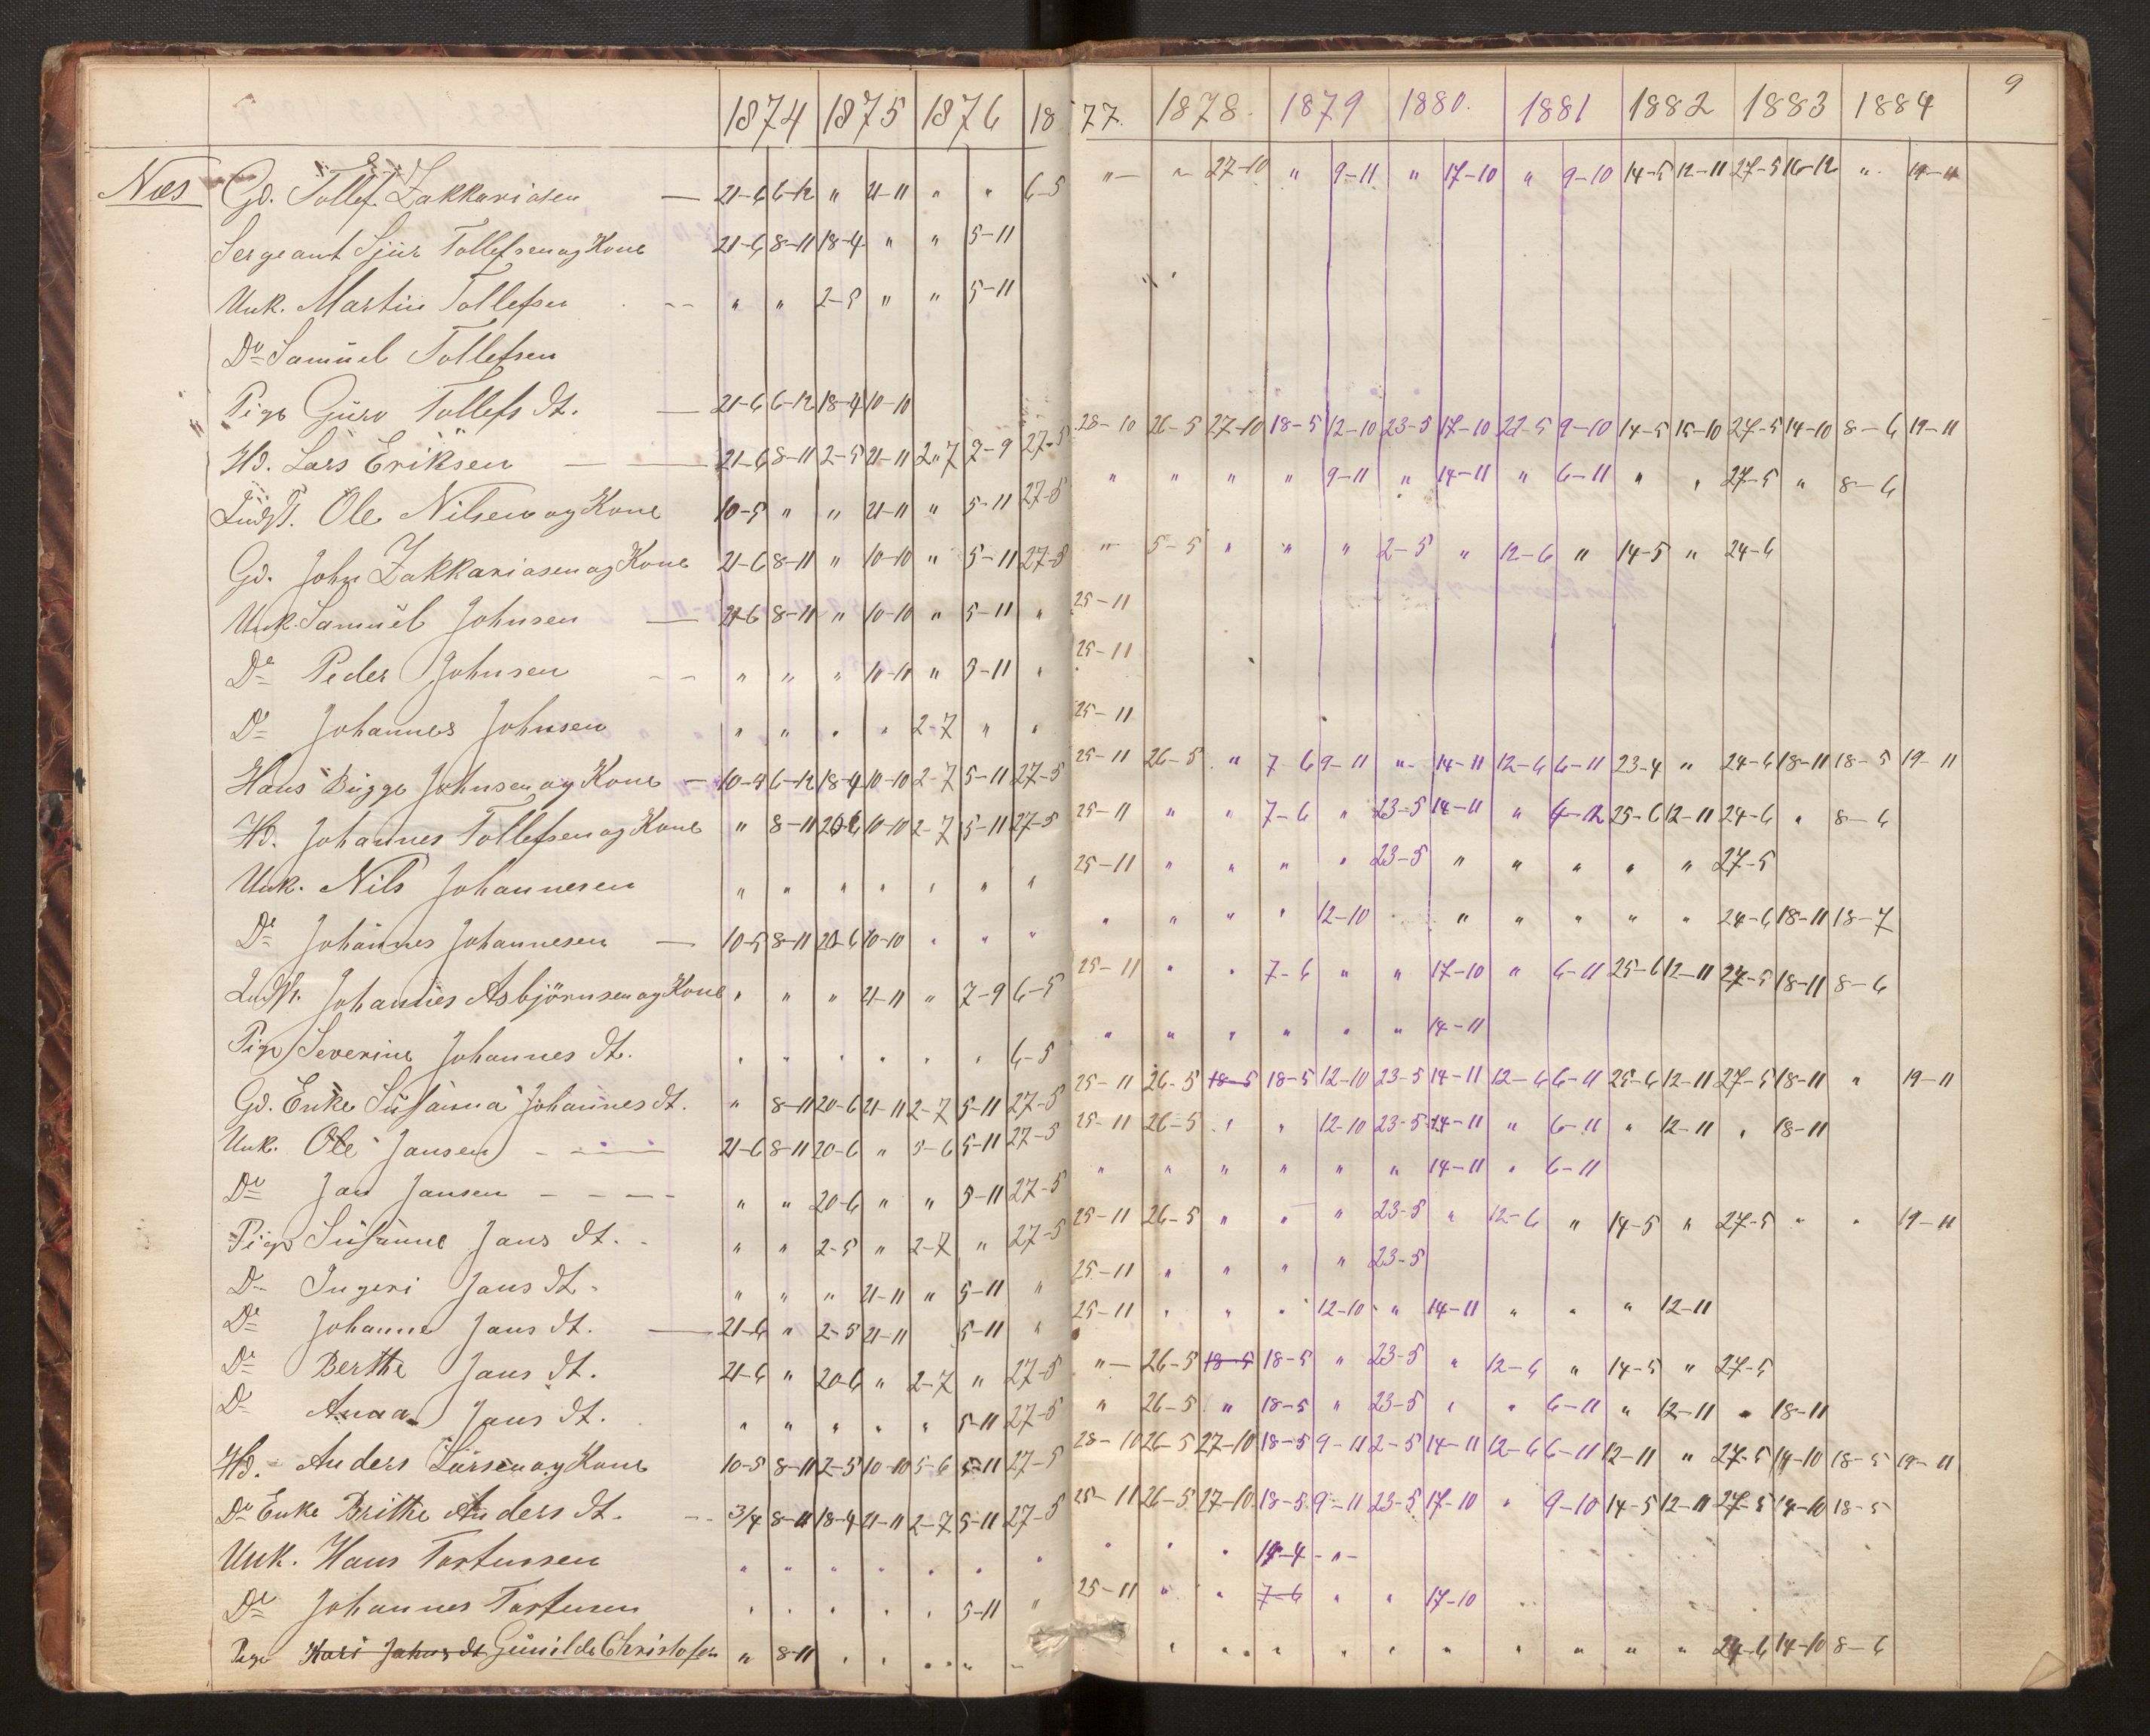 1874 1875 1876 1877. 1878. 1879 1880. 1881 1882 1883 1884 9
Næs Gd. Tollef Zakkariasen — 21-6 6-12 " 21-11 " " 6-5 "— " 27-10 " 9-11 " 17-10 " 9-10 14-5 12-11 27-5 16-12 "
Sergeant Sjur Tollefsen og Kone 21-6 8-11 18-4 " " 5-11
Unk. Martin Tollefsen -- " " 2-5 " " 5-11
Do Samuel Tollefsen
Pige Guro Tollefs dt. — 21-6 6-12 18-4 10-10
Hd. Lars Eriksen — 21-6 8-11 2-5 21-11 2-7 7-9 27-5 28-10 26-5 27-10 18-5 12-10 23-5 17-10 22-5 9-10 14-5 15-10 27-5 14-10 8-6 19-11
Indst. Ole Nilsen og Kone 10-5 " " 21-11 " 5-11 27-5 " " " " 9-11 " 14-11 " 6-11 " " 27-5 " 8-6
Gd. John Zakkariasen og Kone 21-6 8-11 " 10-10 " 5-11 27-5 " 5-5 " " " 2-5 " 12-6 " 14-5 " 24-6
Unk. Samuel Johnsen — 21-6 8-11 " 10-10 " 5-11 " 25-11
Do Peder Johnsen -- " " " 10-10 " 5-11 " 25-11
Do Johannes Johnsen " " " " 2-7 " " 25-11
Hans Bugge Johnsen og Kone — 10-5 6-12 18-4 10-10 2-7 5-11 27-5 25-11 26-5 " 7-6 9-11 " 14-11 12-6 6-11 23-4 " 24-6 18-11 18-5 19-11
Hd. Johannes Tollefsen og Kone " 8-11 20-6 10-10 2-7 5-11 27-5 25-11 " " 7-6 " 23-5 14-11 " 4-12 25-6 12-11 24-6 " 8-6
Unk. Nils Johannesen " " " " " " " 25-11 " " " " 23-5 " " " " " 27-5
Do Johannes Johannesen — 10-5 8-11 20-6 10-10 " " " " " " " 12-10 " " " " " 24-6 18-11 18-7
Indst. Johannes Asbjörnsen og Kone " " " 21-11 " 7-9 6-5 25-11 " " 7-6 " " 17-10 " 6-11 25-6 12-11 27-5 18-11 8-6
Pige Severine Johannes dt. " " " " " " 6-5 " " " " " " 14-11
Gd. Enke Susanna Johannes dt. " 8-11 20-6 21-11 2-7 5-11 27-5 25-11 26-5 18-5 18-5 12-10 23-5 14-11 12-6 6-11 25-6 12-11 27-5 18-11 " 19-11
Unk. Ole Jansen - — 21-6 8-11 20-6 " 5-6 5-11 27-5 25-11 26-5 " " 12-10 23-5 14-11 " 6-11 " 12-11 " 18-11
Do Jan Jansen - - - - " " 20-6 " " 5-11 27-5 " " " " " " 14-11 " 6-11
Pige Susanne Jans dt. - " " 2-5 " 2-7 " 27-5 25-11 26-5 " " " 23-5 " 12-6 " 14-5 " 27-5 " " 19-11
Do Ingeri Jans dt. " " " 21-11 " 5-11 " 25-11 " " " " 23-5
Do Johanne Jans dt. — 21-6 " 2-5 21-11 5-11 " 25-11 " " " 12-10 " 14-11 " " " 12-11
Do Berthe Jans dt. 21-6 " 20-6 " 2-7 " 27-5 "— 26-5 18-5 18-5 " 23-5 " 12-6 " 14-5 " 27-5
Do Anna Jans dt. " " " " " 5-11 27-5 " 26-5 " 18-5 " 23-5 " " 6-11 " 12-11 " 18-11
Hd. Anders Larsen og Kone 10-5 8-11 2-5 10-10 5-6 5-11 27-5 28-10 26-5 27-10 18-5 9-11 2-5 14-11 12-6 6-11 12-11 " 27-5 14-10 18-5 19-11
Do Enke Brithe Anders dt. -- 3/4 8-11 18-4 21-11 2-7 5-11 27-5 25-11 26-5 27-10 18-5 9-11 23-5 17-10 " 9-10 14-5 12-11 27-5 14-10 18-5
Unk. Hans Tostensen " " " " " " " " " " 14-4 - " -
Do Johannes Tostensen " " " " " 5-11 " 25-11 " " 7-6 " " 17-10
Pige Kari Johns dt Gunilde Christofer " 8-11 " " " " " " " " " " " " " " " 24-6 14-10 8-6